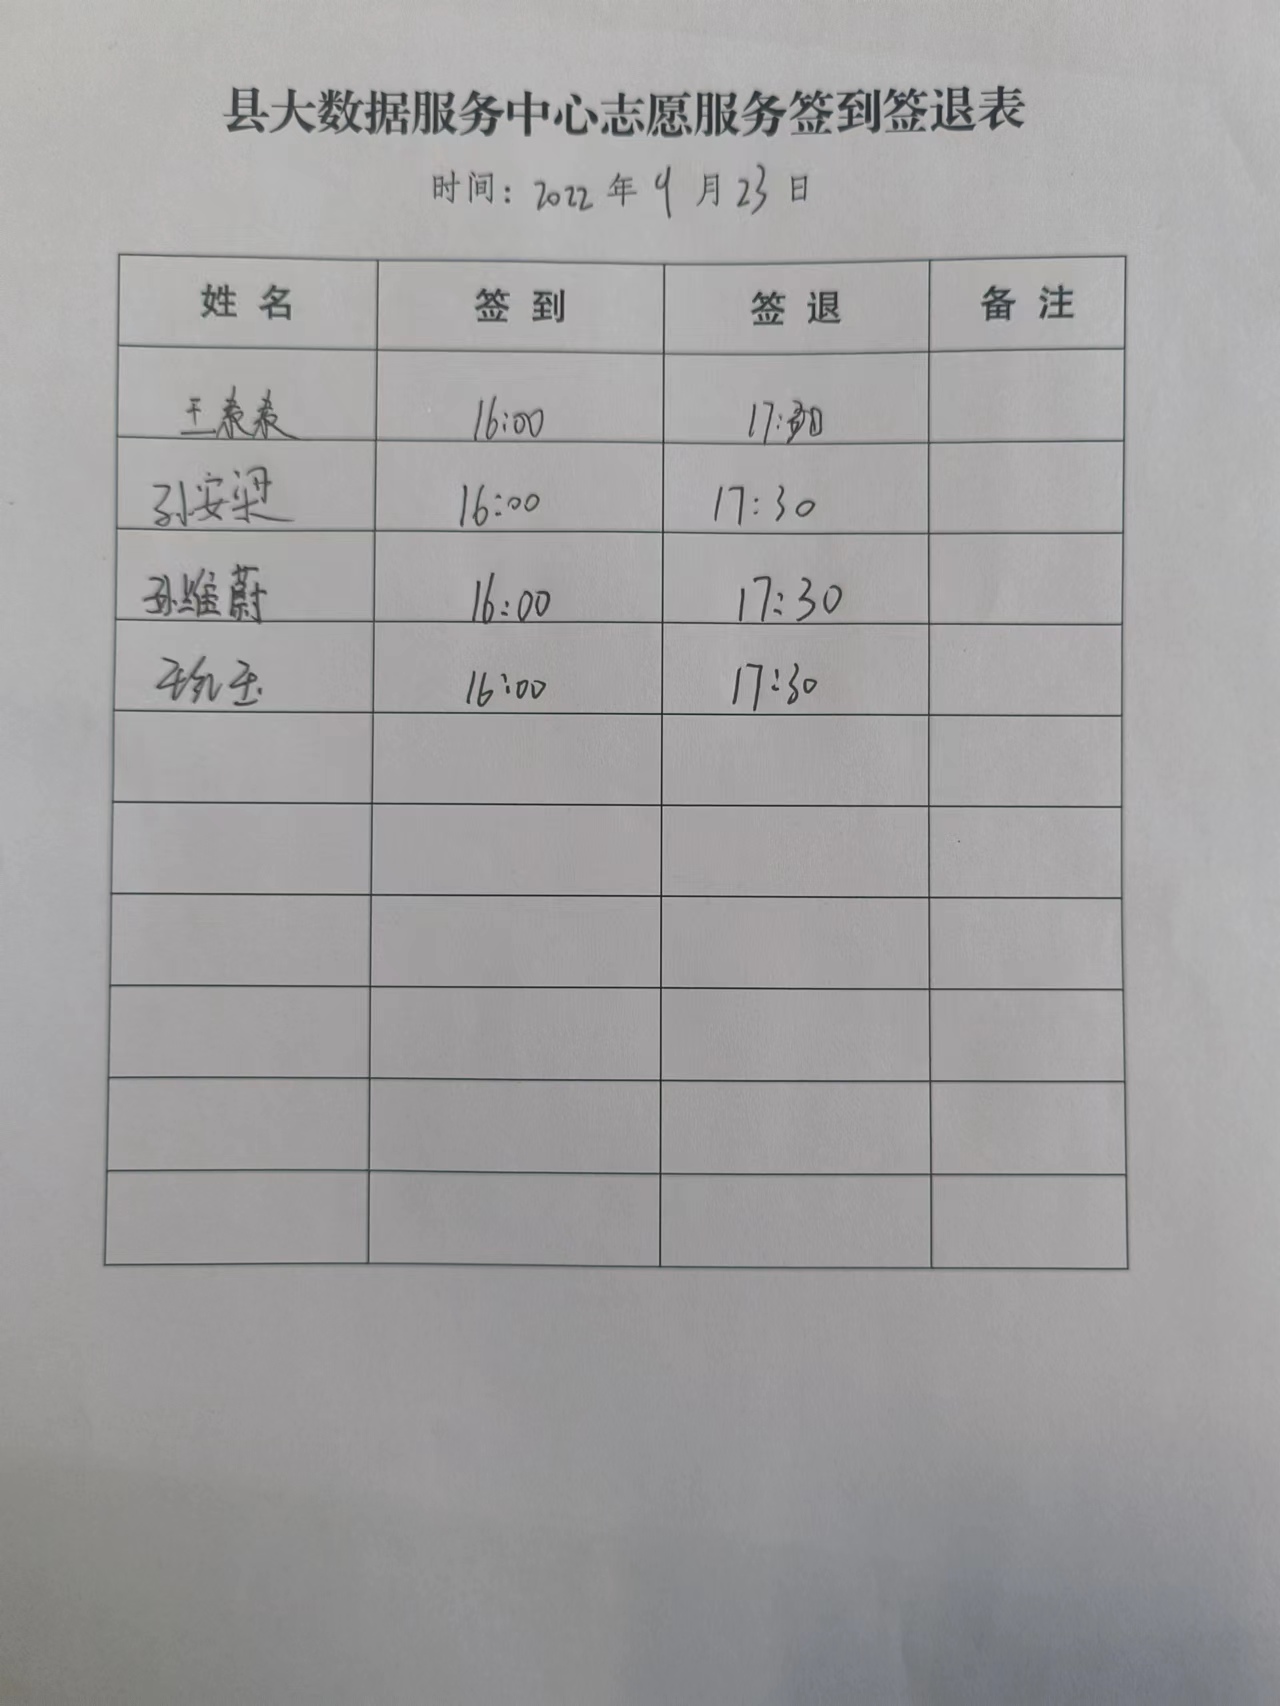 县大数据服务中心志愿服务签到签退表
时间：2022年9月23日
姓 名 签 到 签 退 备 注
王 16:00 17:30
孙安梁 16:00 17:30
孙维蔚 16:00 17:30
16:00 17:30